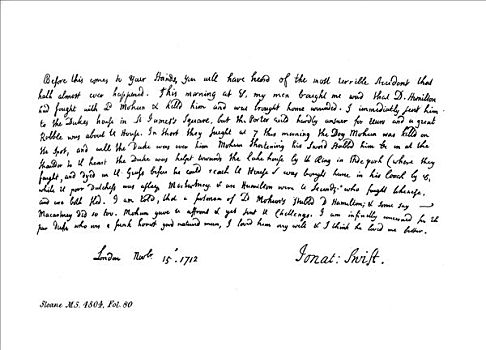 Before this comes to Your Hands, you will have heard of the most terrible Accident that
hath almost ever happened. This morning at 8. my man brought me word that D. Hamilton
had fought with Ld Mohun & killd him and was brought home wounded. I immediatly sent him
to the Dukes house in St James's Square, but the Porter could hardly answer for tears and a great
Rabble was about the House. In short they fought at 7 this morning the Dog Mohun was killd on
the spot, and while the Duke was over him Mohun shortening his Sword stabbd him in at the
Shoulder to the heart the Duke was helpt towards the Cake house by the Ring in Hide park (where they
fought, and dyed on the Grass before he could reach the House & was brought home in his Coach by 8,
while the poor Dutchess was asleep. Maccartney & one Hamilton were the Seconds who fought likewise,
and are both fled. I am told, that a footman of Ld Mohun's stabbd D Hamilton; & some say
Macartney did so too. Mohun gave the affront & yet sent the Challenge. I am infinitly concerned for the
poor Duke who was a frank honest good natured man, I loved him very well & I think he loved me better.
London Novbr 15th. 1712
Jonat: Swift.
Sloane M.S. 4804, Fol. 80